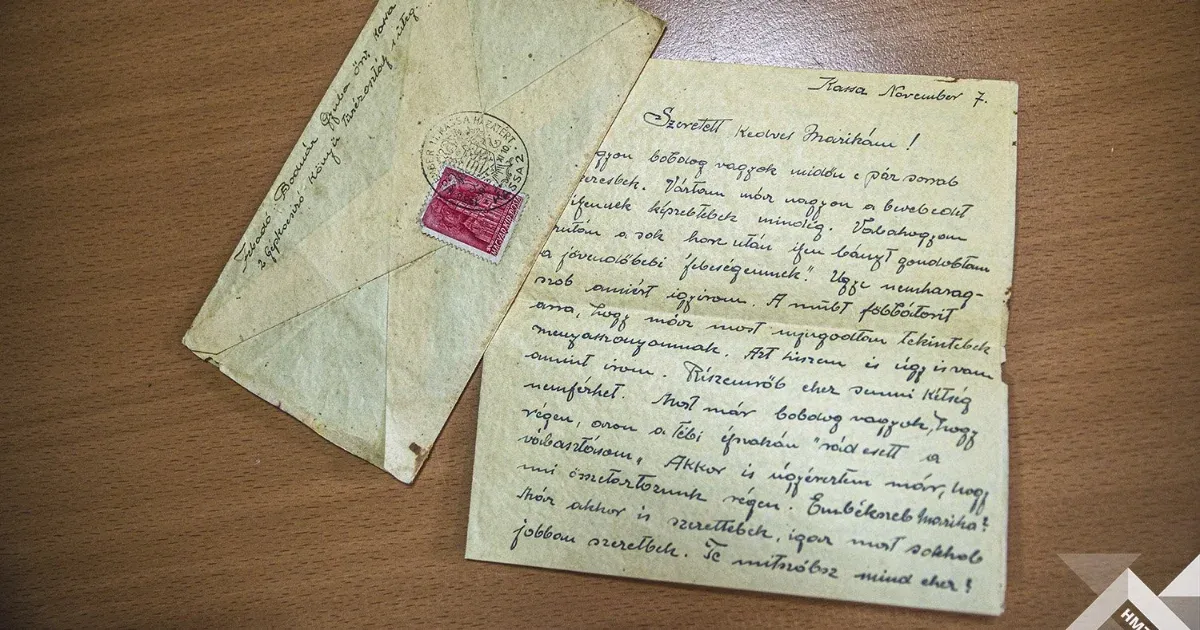 Feladó Bodnár Gyula őrv. Kassa
2 Gépkocsizó Könnyű Tarczontály 1 üteg.
KASSA HAZATÉRT
KASSA 2
Kassa November 7.
Szeretett Kedves Marikám!
gyon boldog vagyok midőn e pár sorral
kereslek. Vártam már nagyon a leveledet
ilyennek képzeltelek mindég. Valahogyan
után a sok harc után ilyen lányt gondoltam
a jövendőbeli "feleségemnek". Ugye nemharag-
szol amiért igyirom. A mult följlátorit
arra, hogy már most nyugodtan tekintelek
menyasszonyomnak. Azt hiszem és úgy is vam
amint irom. Részemről eher semmi kétség
nemférhet. Most már boldog vagyok, hogy
régen, azon a téli éjrakán "rád esett a
választásom„ Akkor is úgyéreztem már, hogy
mi öszetartozunk régen. Emlékszel Marika?
Már akkor is szerettelek, igaz most sokkal
jobban szeretlek. Te mitszólsz mind eher?
HM